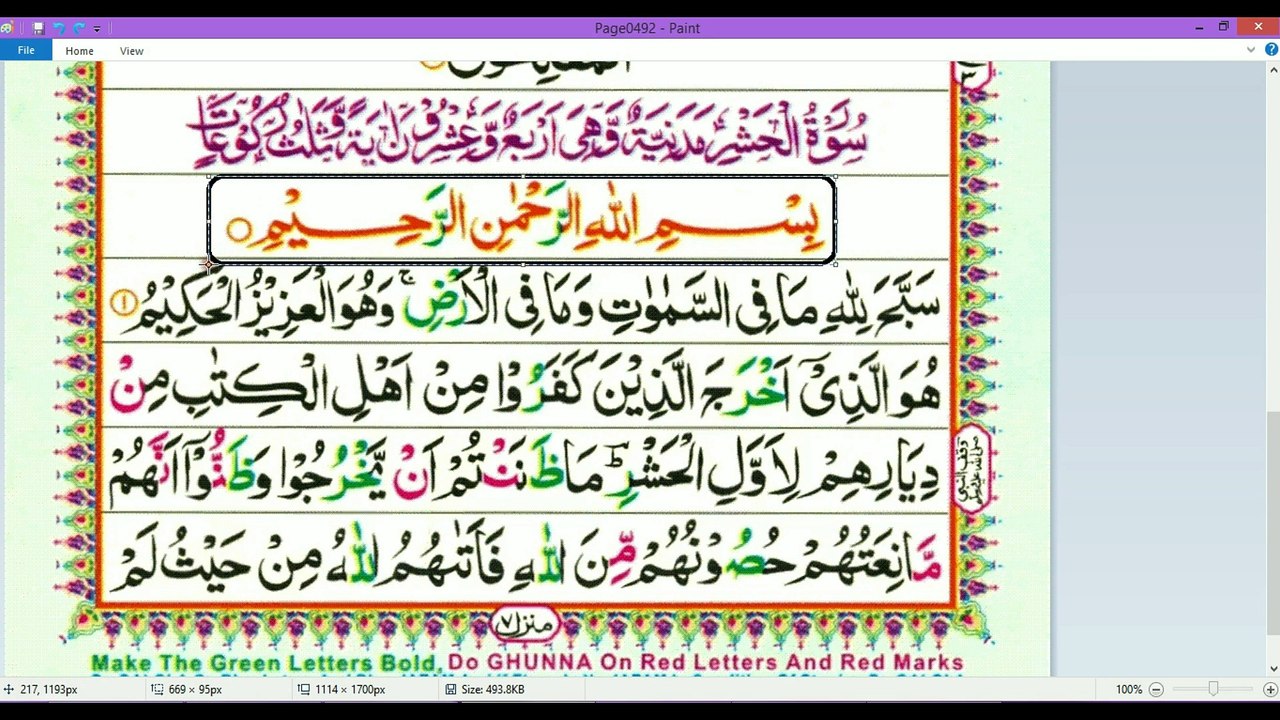 Page0492 - Paint
File Home View
سُوْرَةُ الْحَشْرِ مَدَنِيَّةٌ وَّهِىَ اَرْبَعٌ وَّعِشْرُوْنَ اٰيَةً وَّثَلٰثُ رُكُوْعَاتٍ
بِسْمِ اللهِ الرَّحْمٰنِ الرَّحِيْمِ
سَبَّحَ لِلّٰهِ مَا فِى السَّمٰوٰتِ وَمَا فِى الْاَرْضِ ۚ وَهُوَ الْعَزِيْزُ الْحَكِيْمُ ۝۱
هُوَ الَّذِىْٓ اَخْرَجَ الَّذِيْنَ كَفَرُوْا مِنْ اَهْلِ الْكِتٰبِ مِنْ
دِيَارِهِمْ لِاَوَّلِ الْحَشْرِ ؕ مَا ظَنَنْتُمْ اَنْ يَّخْرُجُوْا وَظَنُّوْٓا اَنَّهُمْ
مَّانِعَتُهُمْ حُصُوْنُهُمْ مِّنَ اللّٰهِ فَاَتٰىهُمُ اللّٰهُ مِنْ حَيْثُ لَمْ
منزل ۷
Make The Green Letters Bold, Do GHUNNA On Red Letters And Red Marks
217, 1193px 669 × 95px 1114 × 1700px Size: 493.8KB 100%